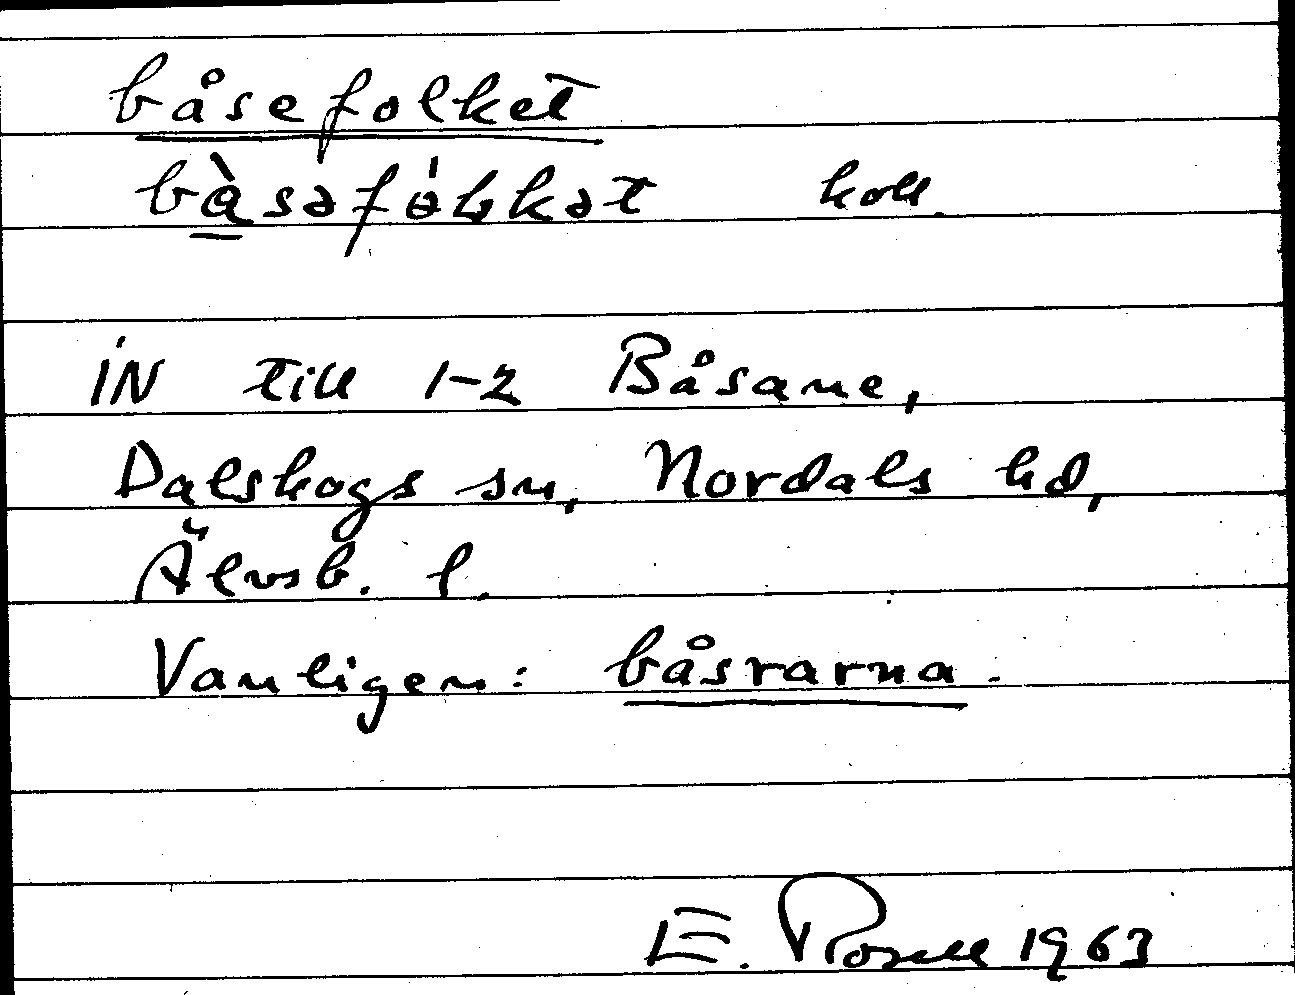 båsefolket
bàsəfòłkət koll.
iN till 1-2 Båsane,
Dalskogs sn, Nordals hd,
Älvsb. l.
Vanligen: båsrarna.
E. Rosell 1963